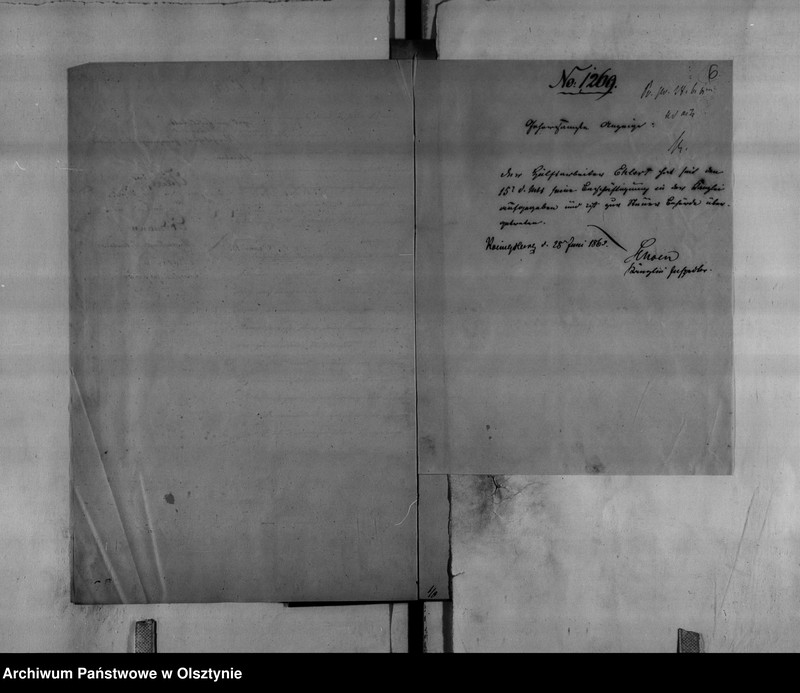 6
No: 1269.
Pr. pr. 28. 6.
Gehorsamste Anzeige.
Der Hülfsarbeiter Eklert hat seit dem
15t d. Mts seine Beschäftigung in der Kanzlei
aufgegeben und ist zur Steuer Behörde über-
getreten.
Koenigsberg d. 28 Juni 186
Schoen
Kanzlei Inspektor.
Archiwum Państwowe w Olsztynie